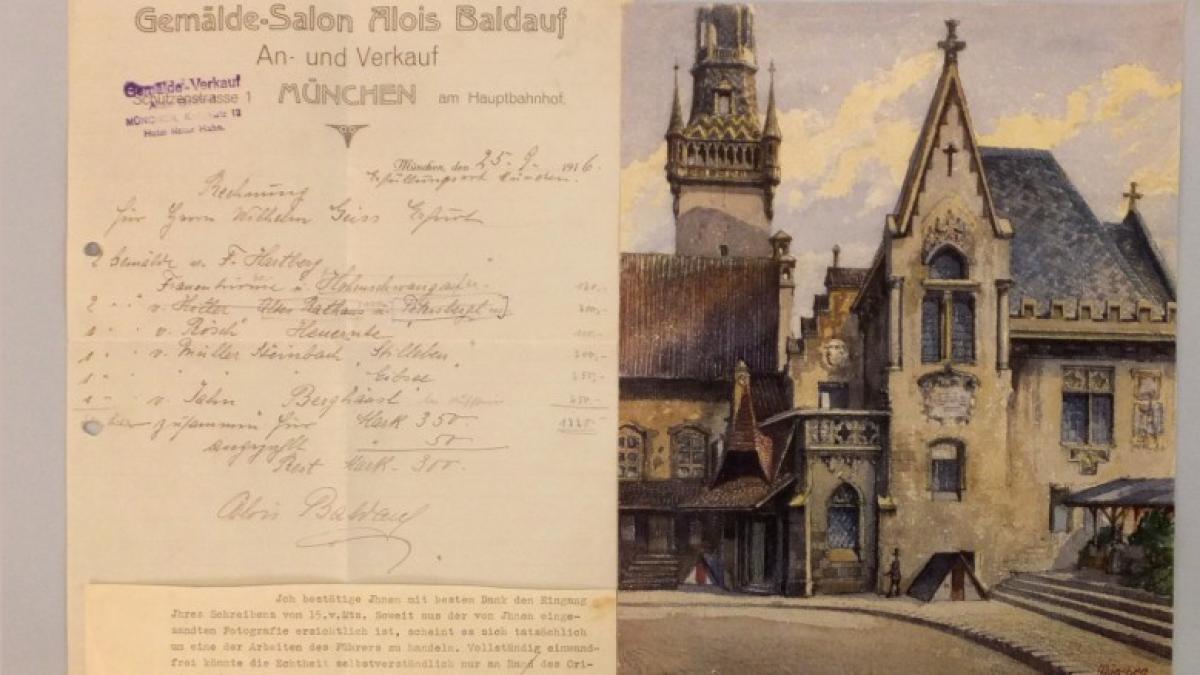 Gemälde-Salon Alois Baldauf
An- und Verkauf
Gemälde-Verkauf
Schützenstrasse 1
MÜNCHEN am Hauptbahnhof.
MÜNCHEN, 13
Hotel Roter Hahn.
München, den 25. 9. 1916.
Erfüllungsort München.
Rechnung
für Herrn Wilhelm Geiss Erfurt
2 Gemälde v. F. Hartberg
Frauentürme u. Hohenschwangau
2 " " v. Hotler Altes Rathaus u.
1 " v. Rösch Heuernte "
1 " v. Müller Steinbach Stilleben "
1 " " Eibsee
1 " v. Jahn Berghäusl
zusammen für Mark 350.-
angezahlt " 50.-
Rest Mark. 300.-
Alois Baldauf
Jch bestätige Jhnen mit besten Dank den Eingang
Jhres Schreibens vom 15.v.Mts. Soweit aus der von Jhnen einge-
sandten Fotografie ersichtlich ist, scheint es sich tatsächlich
um eine der Arbeiten des Führers zu handeln. Vollständig einwand-
frei könnte die Echtheit selbstverständlich nur an Hand des Ori-
München